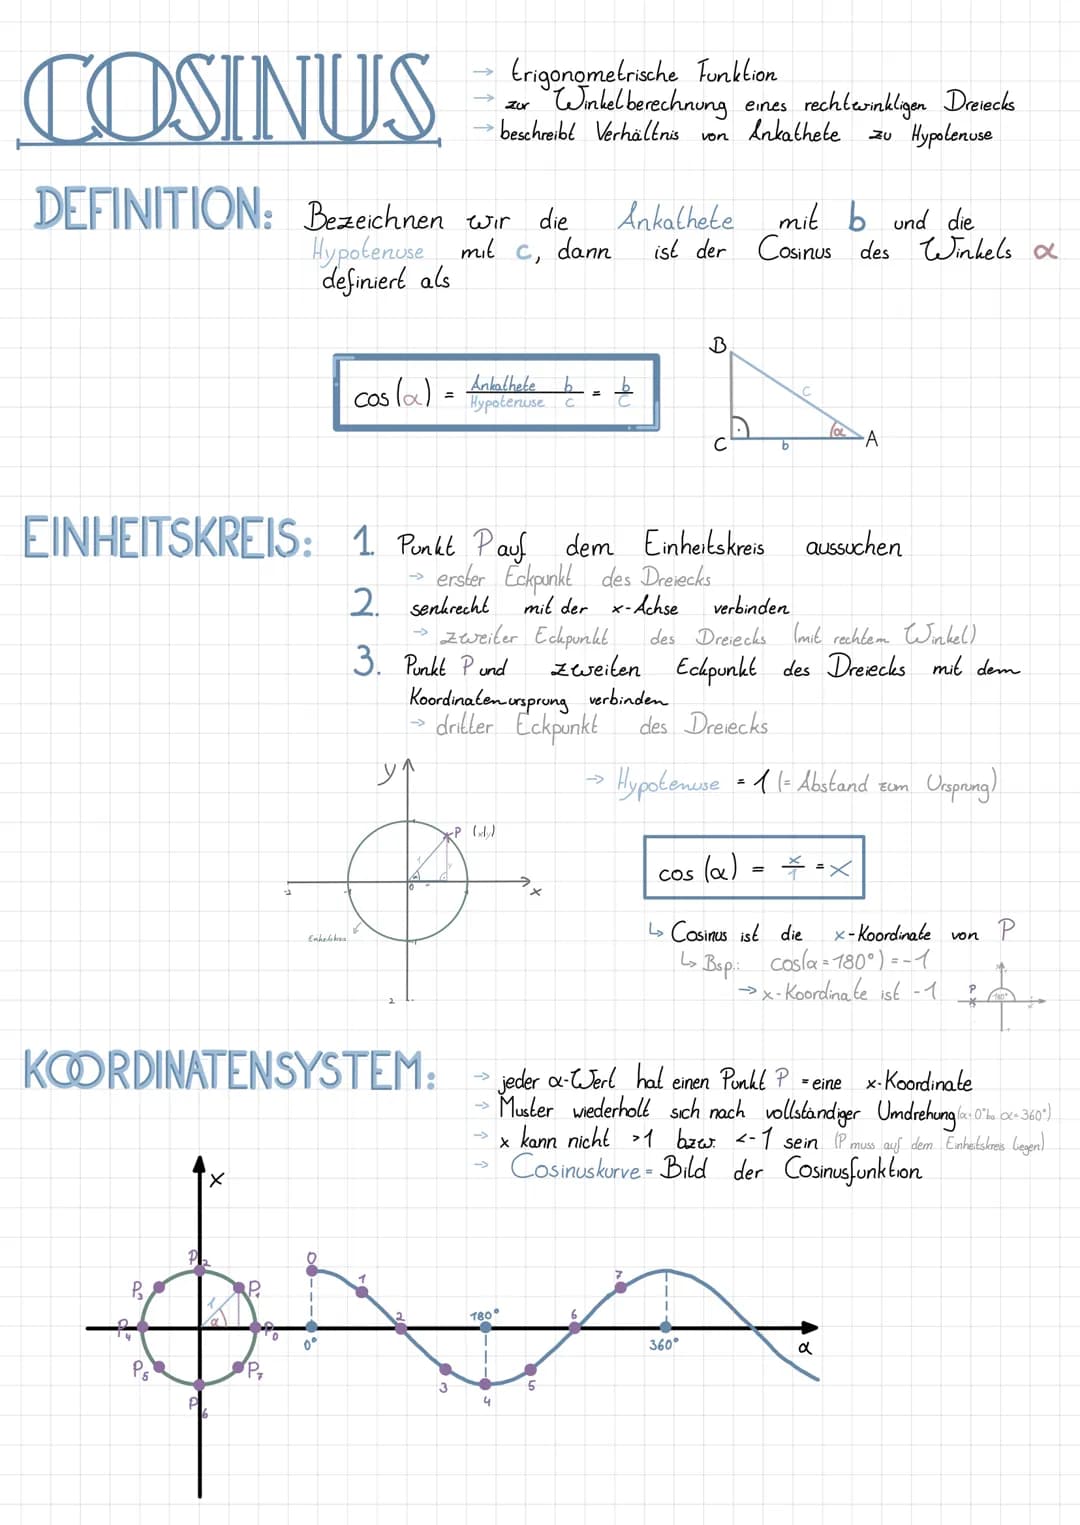 COSINUS
→ trigonometrische Funktion
→ zur Winkelberechnung eines rechtwinkligen Dreiecks
→ beschreibt Verhältnis von Ankathete zu Hypotenuse
DEFINITION: Bezeichnen wir die Ankathete mit b und die
Hypotenuse mit c, dann ist der Cosinus des Winkels α
definiert als
cos(α) = Ankathete b / Hypotenuse c = b/c
B
c
α
C
b
A
EINHEITSKREIS: 1. Punkt P auf dem Einheitskreis aussuchen
→ erster Eckpunkt des Dreiecks
2. senkrecht mit der x-Achse verbinden
→ zweiter Eckpunkt des Dreiecks (mit rechtem Winkel)
3. Punkt P und zweiten Eckpunkt des Dreiecks mit dem
Koordinatenursprung verbinden
→ dritter Eckpunkt des Dreiecks
y
→ Hypotenuse = 1 (= Abstand zum Ursprung)
P (x|y)
cos (α) = x/1 = x
x
Einheitskreis
↳ Cosinus ist die x-Koordinate von P
↳ Bsp.: cos(α = 180°) = -1
→ x-Koordinate ist -1
P
180°
2
KOORDINATENSYSTEM:
→ jeder α-Wert hat einen Punkt P = eine x-Koordinate
→ Muster wiederholt sich nach vollständiger Umdrehung (α=0° bis α=360°)
→ x kann nicht >1 bzw. <-1 sein (P muss auf dem Einheitskreis liegen)
→ Cosinuskurve = Bild der Cosinusfunktion
x
P2
P3
P1
1
α
P4
P0
P5
P7
P6
0
1
2
180°
6
7
0°
360°
α
3
4
5